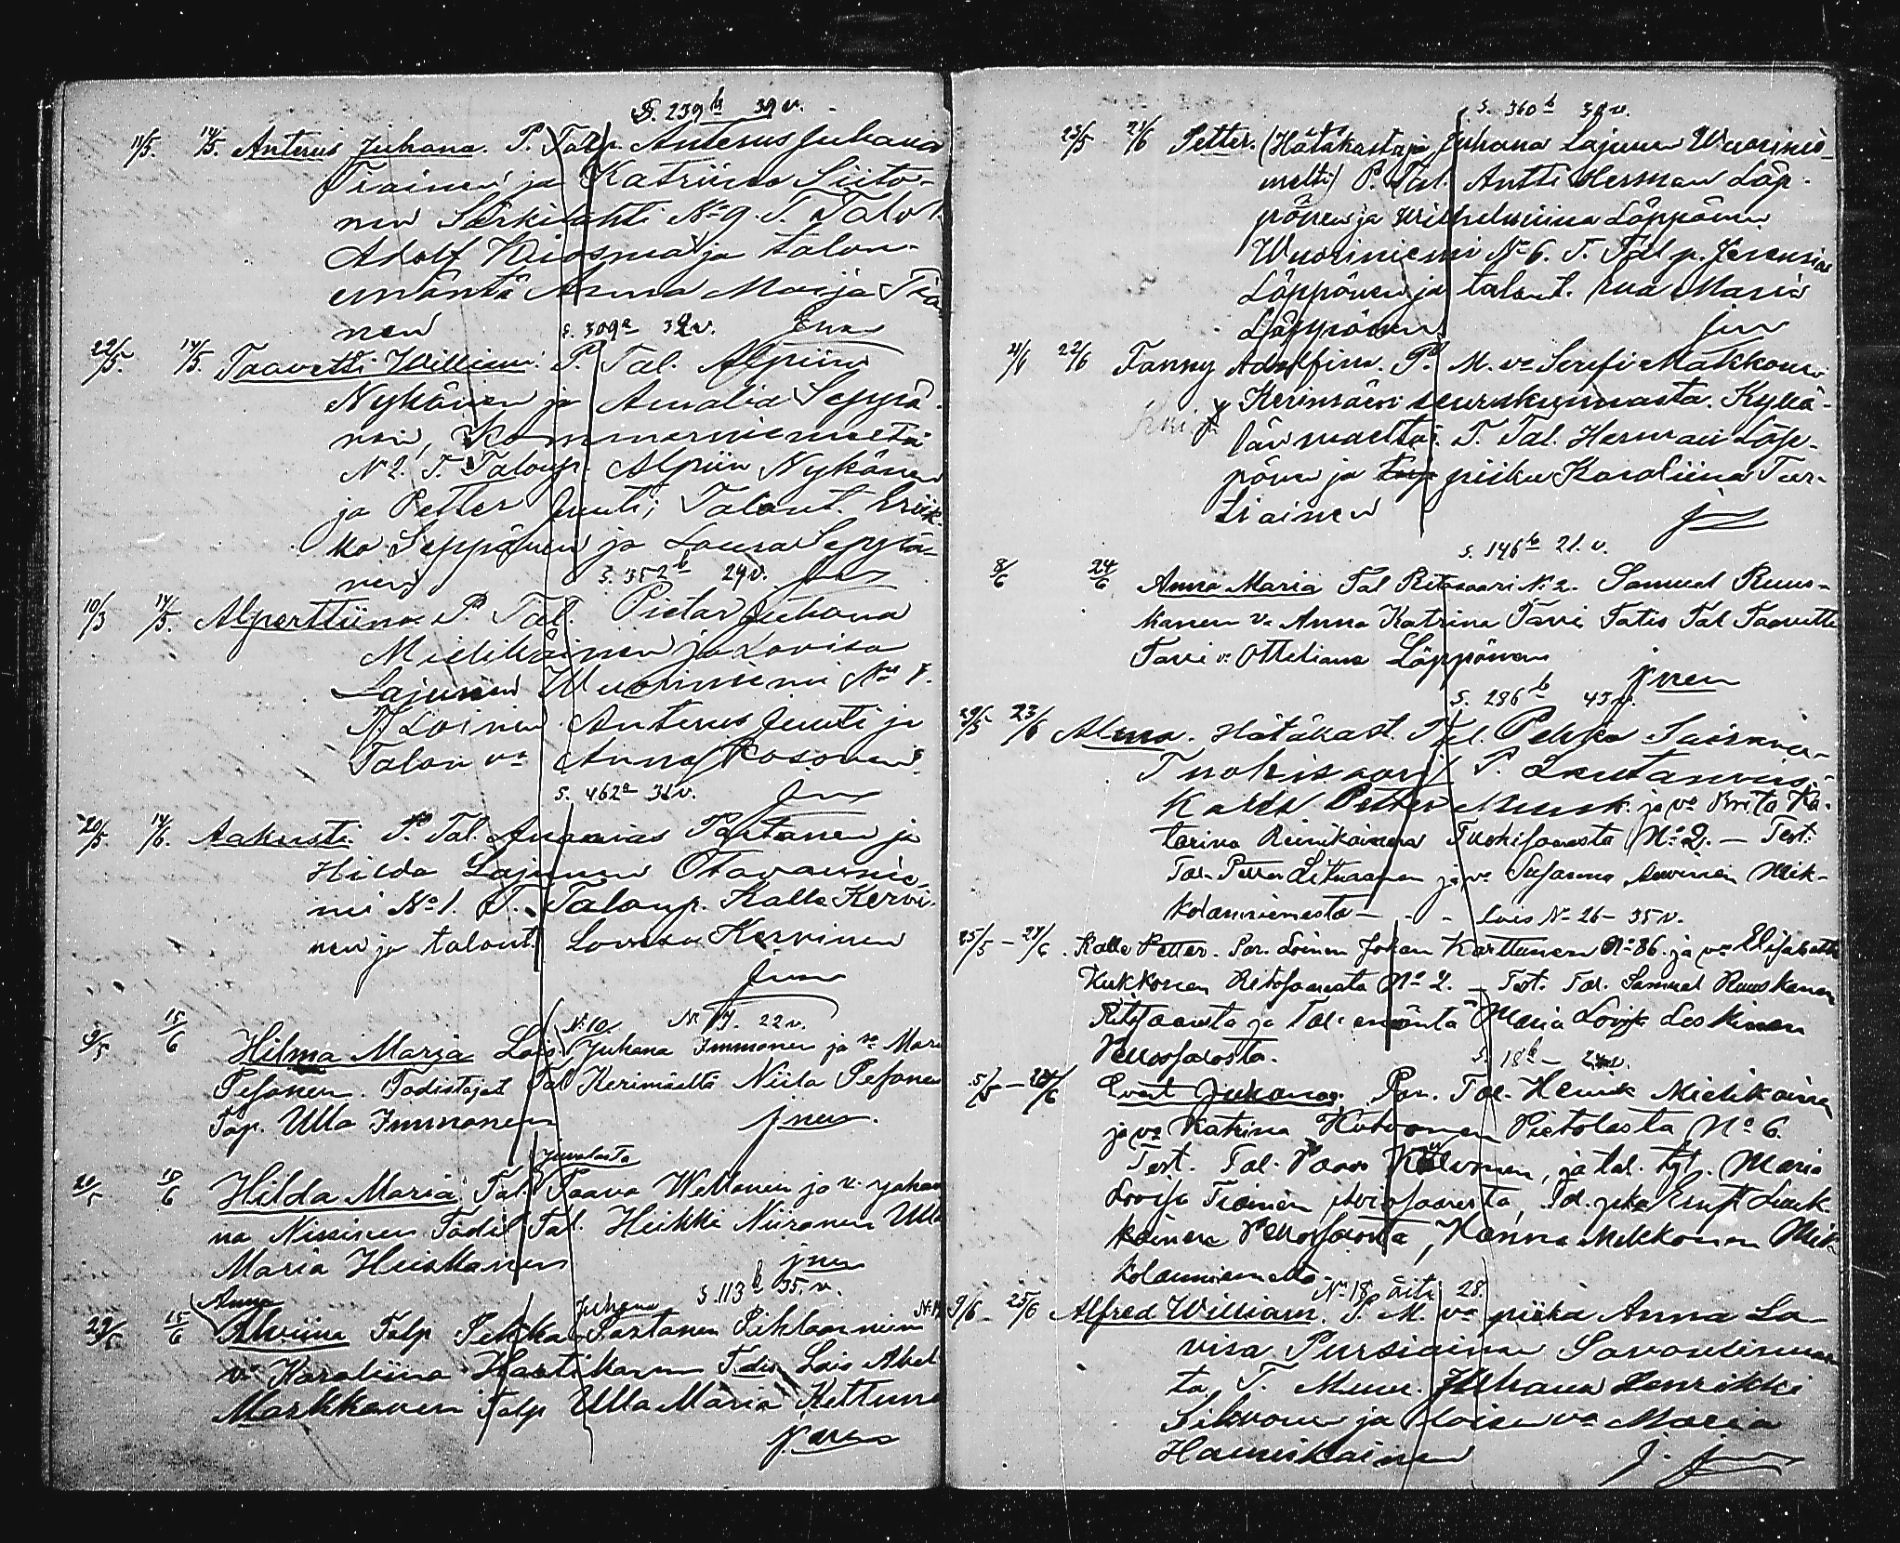 S. 239b 39 v.
11/5. 14/5. Anterus Juhana. P. Talp. Anterus Juhana
Tiainen ja Katriina Siito-
nen Särkilahti No 9. T. Tal. v.
Adolf Kiosma ja talon-
emäntä Anna Maija Tia
nen
S. 309a 32 v.
22/5. 14/5. Taavetti William. P. Tal. Alpiin
Nykänen ja Amalia Seppä-
nen, Kommerniemeltä
N 2. T. Taloup. Alpiin Nykänen
ja Petter Juuti; Talont. Eriik-
ka Seppänen ja Loura Seppä-
nen
S. 352b 29 v.
10/3 14/5. Alperttiina. P. Tal. Pietar Juhana
Mielikäinen ja Lovisa
Lajunen Wuoriniemi No 8.
T. Loinen Anterus Juuti ja
Talon va Anna Kosonen.
S. 462a 31 v.
20/5. 14/6. Aakusti. P. Tal. Ananias Partanen ja
Hilda Lajunen Otavanie-
mi No 1. T. Taloup. Kalle Kervi-
nen ja talont. Lovisa Kervinen
No 10. 22 v.
9/5 15/6 Hilma Maria Lois. Juhana Immonen ja va Mari
Pesonen. Todistajat Tal Kerimäeltä Niilo Pesonen
Tap. Ulla Immonen
Juvolasta
20/5 15/6 Hilda Maria Tal Paavo Wellonen ja v. Johan
na Nissinen Todist Tal. Heikki Niiranen Ulla
Maria Heiskanen
S. 113b 35. v.
Anna Juhana
29/5 15/6 Alviina Talp Pekka Partanen Pihlajaniemi
v. Karoliina Hartikainen Todis Lois Abel
Markkanen Talp Ulla Maria Kettunen
S. 360b 38 v.
23/5 21/6 Petter. (Hätäkastaja Juhana Lajunen Wuorinie-
meltä) P. Tal. Antti Herman Löp-
pönen ja Wilhelmiina Löppönen
Wuoriniemi No 6. T. Tal p. Jeremias
Löppönen ja talont. Eva Maria
Löppönen.
21/6 22/6 Fanny Adolfina. P. M. va Serafi Makkonen
Kerimäen seurakunnasta. Kyllä-
län maelta. T. Tal. Herman Löp-
pönen ja piika Karoliina Tur-
tiainen
S. 146b 21. v.
8/6 24/6 Anna Maria Tal Ritosaari N. 2. Samuel Ruus-
kanen va Anna Katrina Tavi Todis Tal Taavetti
Tavi va Otteliana Löppönen
S. 286b 43 v.
29/5 23/6 Alma. Hätäkast. Tal. Pekka Sairanen
Tuokisaari P.
Karl Petter ja va Brita Ka-
tarina Reinikainen Tuokisaaresta No 2. — Test.
Tal. Petter Litmanen ja va Susanna Auvinen Mik-
kolanniemestä — - - lois No 26 - 35 v.
25/5 - 24/6. Kalle Petter. Par. Loinen Johan Karttunen No 86. ja va Elisabetta
Kukkonen Ritosaaresta No 2. — Test. Tal. Samuel Ruuskanen
Ritosaaresta ja Tal. emäntä Maria Lovisa Loskinen
Pellossalosta.
S. 18b - 24 v.
5/5 - 24/6 Evert Juhana. Par. Tal. Henrik Mielikäinen
ja va Katrina Hotonen Pietolasta No 6.
Test. Tal. Paavo Kölvönen, ja tal. tyt. Maria
Lovisa Tiainen Aviosaaresta, Tal. poika Ernst Liuk-
kainen Pellossalosta, Hanna Mikkonen Mik-
kolanniemeltä.
No 18 äiti 28.
9/6 - 25/6 Alfred William. P. M. va piika Anna Lo-
visa Pursiainen Savonlinnas
ta T. Muur. Juhana Henrikki
Silvonen ja loisen va Maria
Hannikainen